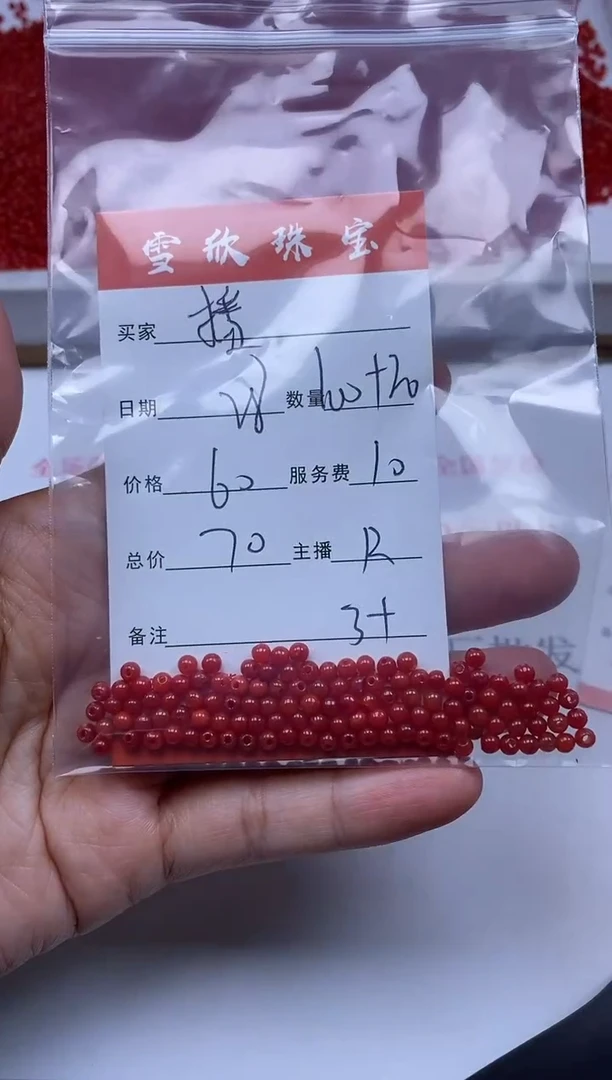 雪欣珠宝
买家 播
日期 数量 100+20
价格 60 服务费 10
总价 70 主播 R
备注 3+